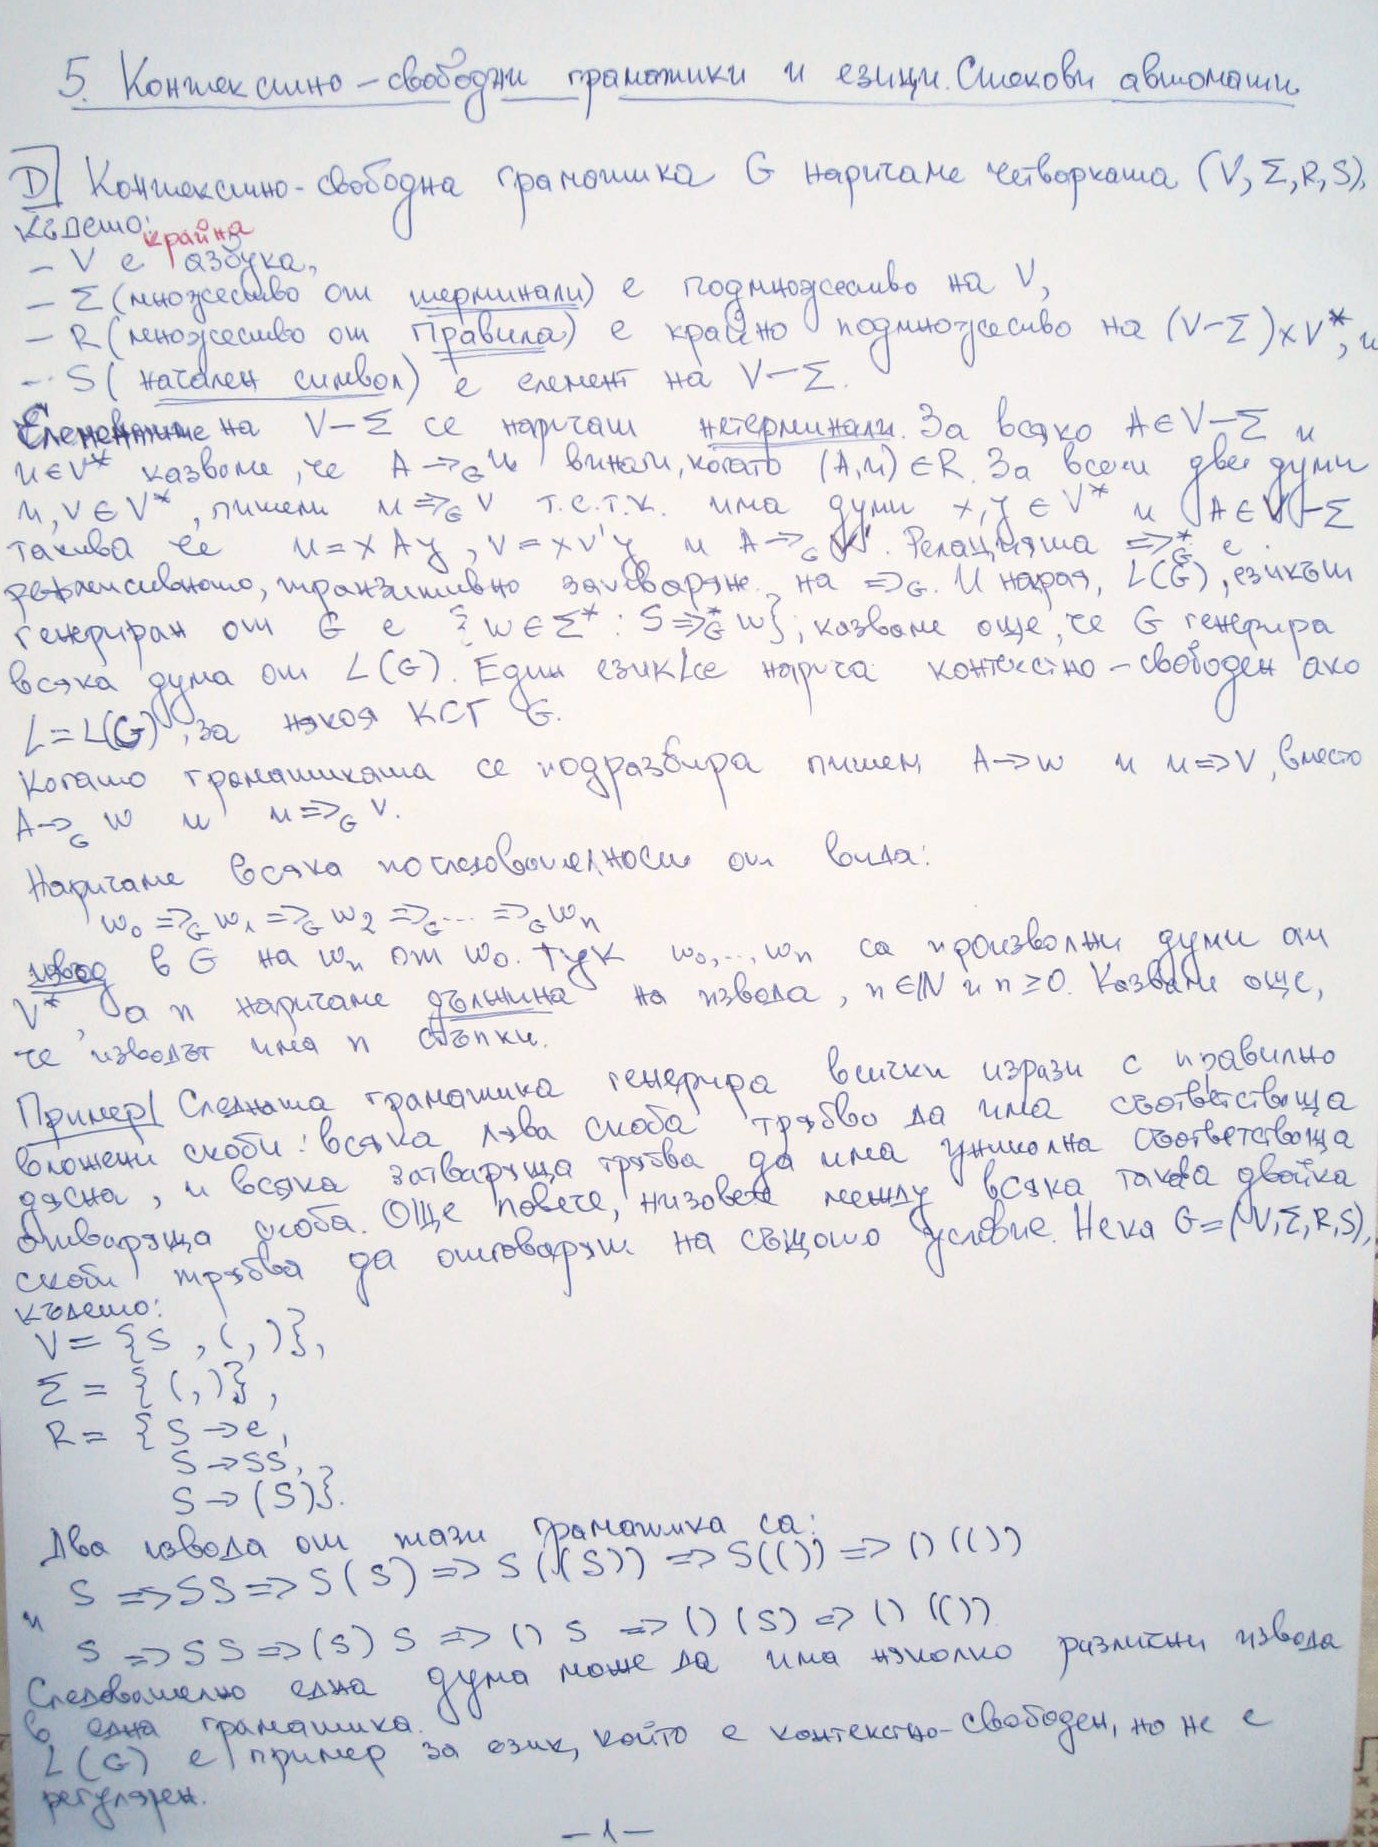 5. Контекстно-свободни граматики и езици. Стекови автомати
D| Контекстно-свободна граматика G наричаме четворката (V, Σ, R, S),
където:
крайна
- V е азбука,
- Σ (множество от терминали) е подмножество на V,
- R (множество от правила) е крайно подмножество на (V-Σ)×V*, и
- S (начален символ) е елемент на V-Σ.
Елементите на V-Σ се наричат нетерминали. За всяко A∈V-Σ и
u∈V* казваме, че A→_G u винаги, когато (A,u)∈R. За всеки две думи
u,v∈V*, пишем u⇒_G v т.с.т.к. има думи x,y∈V* и A∈V-Σ
такива че u=xAy, v=xv'y и A→_G v'. Релацията ⇒*_G е
рефлексивното, транзитивно затваряне на ⇒_G. И накрая, L(G), езикът
генериран от G е {w∈Σ* : S⇒*_G w}; казваме още, че G генерира
всяка дума от L(G). Един език L се нарича контекстно-свободен ако
L=L(G), за някоя КСГ G.
Когато граматиката се подразбира пишем A→w и u⇒v, вместо
A→_G w и u⇒_G v.
Наричаме всяка последователност от вида:
w₀ ⇒_G w₁ ⇒_G w₂ ⇒_G ... ⇒_G wₙ
извод в G на wₙ от w₀. Тук w₀,..,wₙ са произволни думи от
V*, а n наричаме дължина на извода, n∈ℕ и n≥0. Казваме още,
че изводът има n стъпки.
Пример| Следната граматика генерира всички изрази с правилно
вложени скоби: всяка лява скоба трябво да има съответстваща
дясна, и всяка затваряща трябва да има уникална съответстваща
отваряща скоба. Още повече, низовете между всяка такава двойка
скоби трябва да отговарят на същото условие. Нека G=(V,Σ,R,S),
където:
V = {S , (, )},
Σ = {(, )},
R = {S→e,
S→SS,
S→(S)}.
Два извода от тази граматика са:
S ⇒ SS ⇒ S(S) ⇒ S((S)) ⇒ S(()) ⇒ ()(())
и
S ⇒ SS ⇒ (S)S ⇒ ()S ⇒ ()(S) ⇒ ()(())
Следователно една дума може да има няколко различни извода
в една граматика.
L(G) е пример за език, който е контекстно-свободен, но не е
регулярен.
-1-